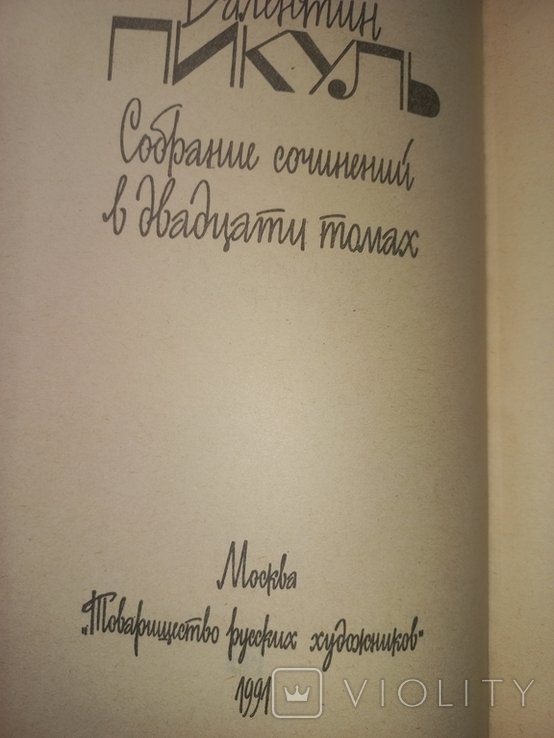 Валентин
ПИКУЛЬ
Собрание сочинений
в двадцати томах
Москва
„Товарищество русских художников"
1991
VIOLITY